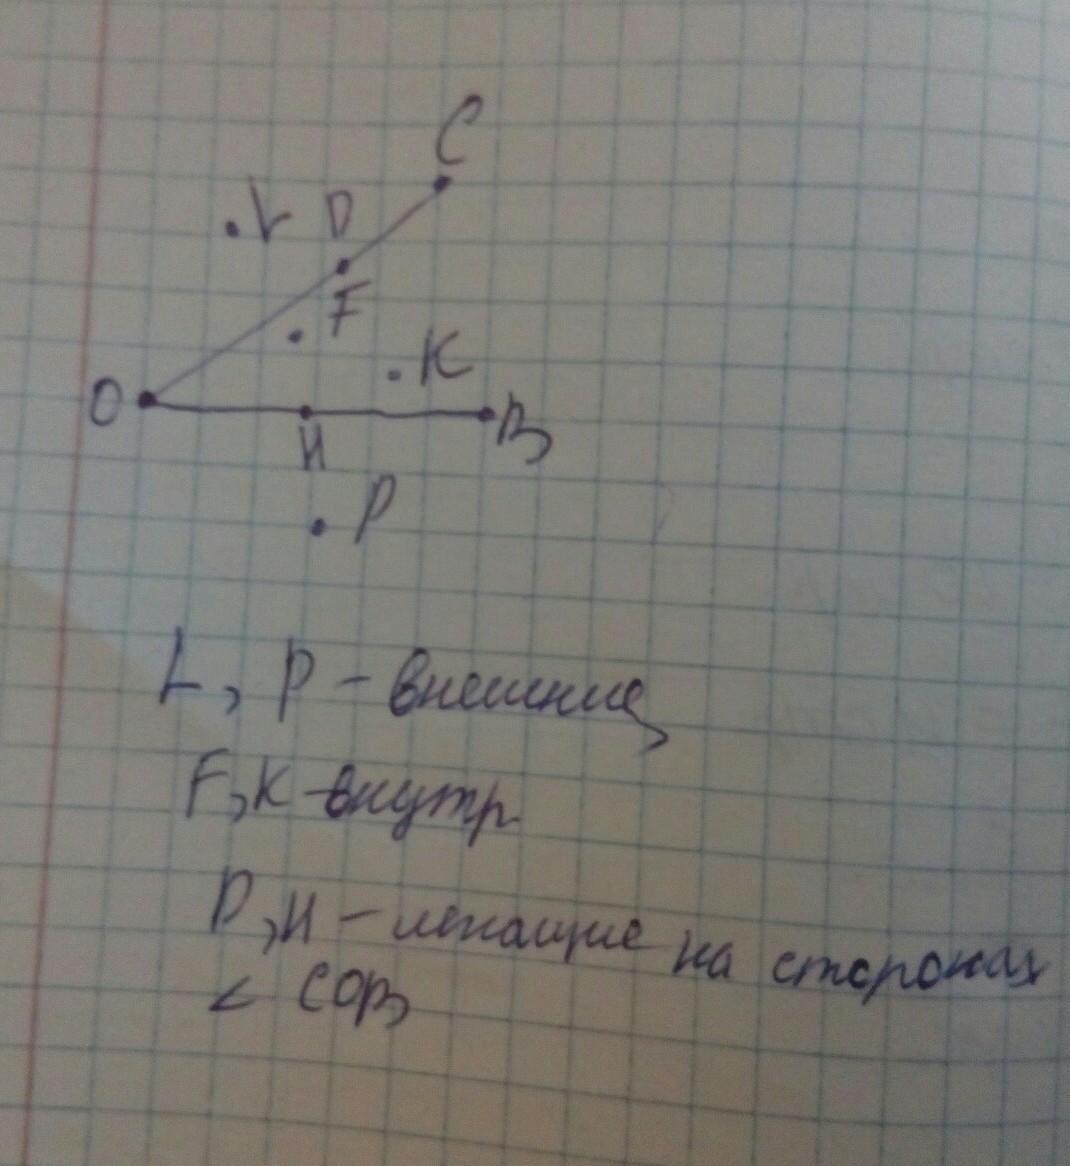 C
L D
F
K
O
H B
P
L, P - внешние
F, K - внутр.
D, H - лежащие на сторонах
< COB